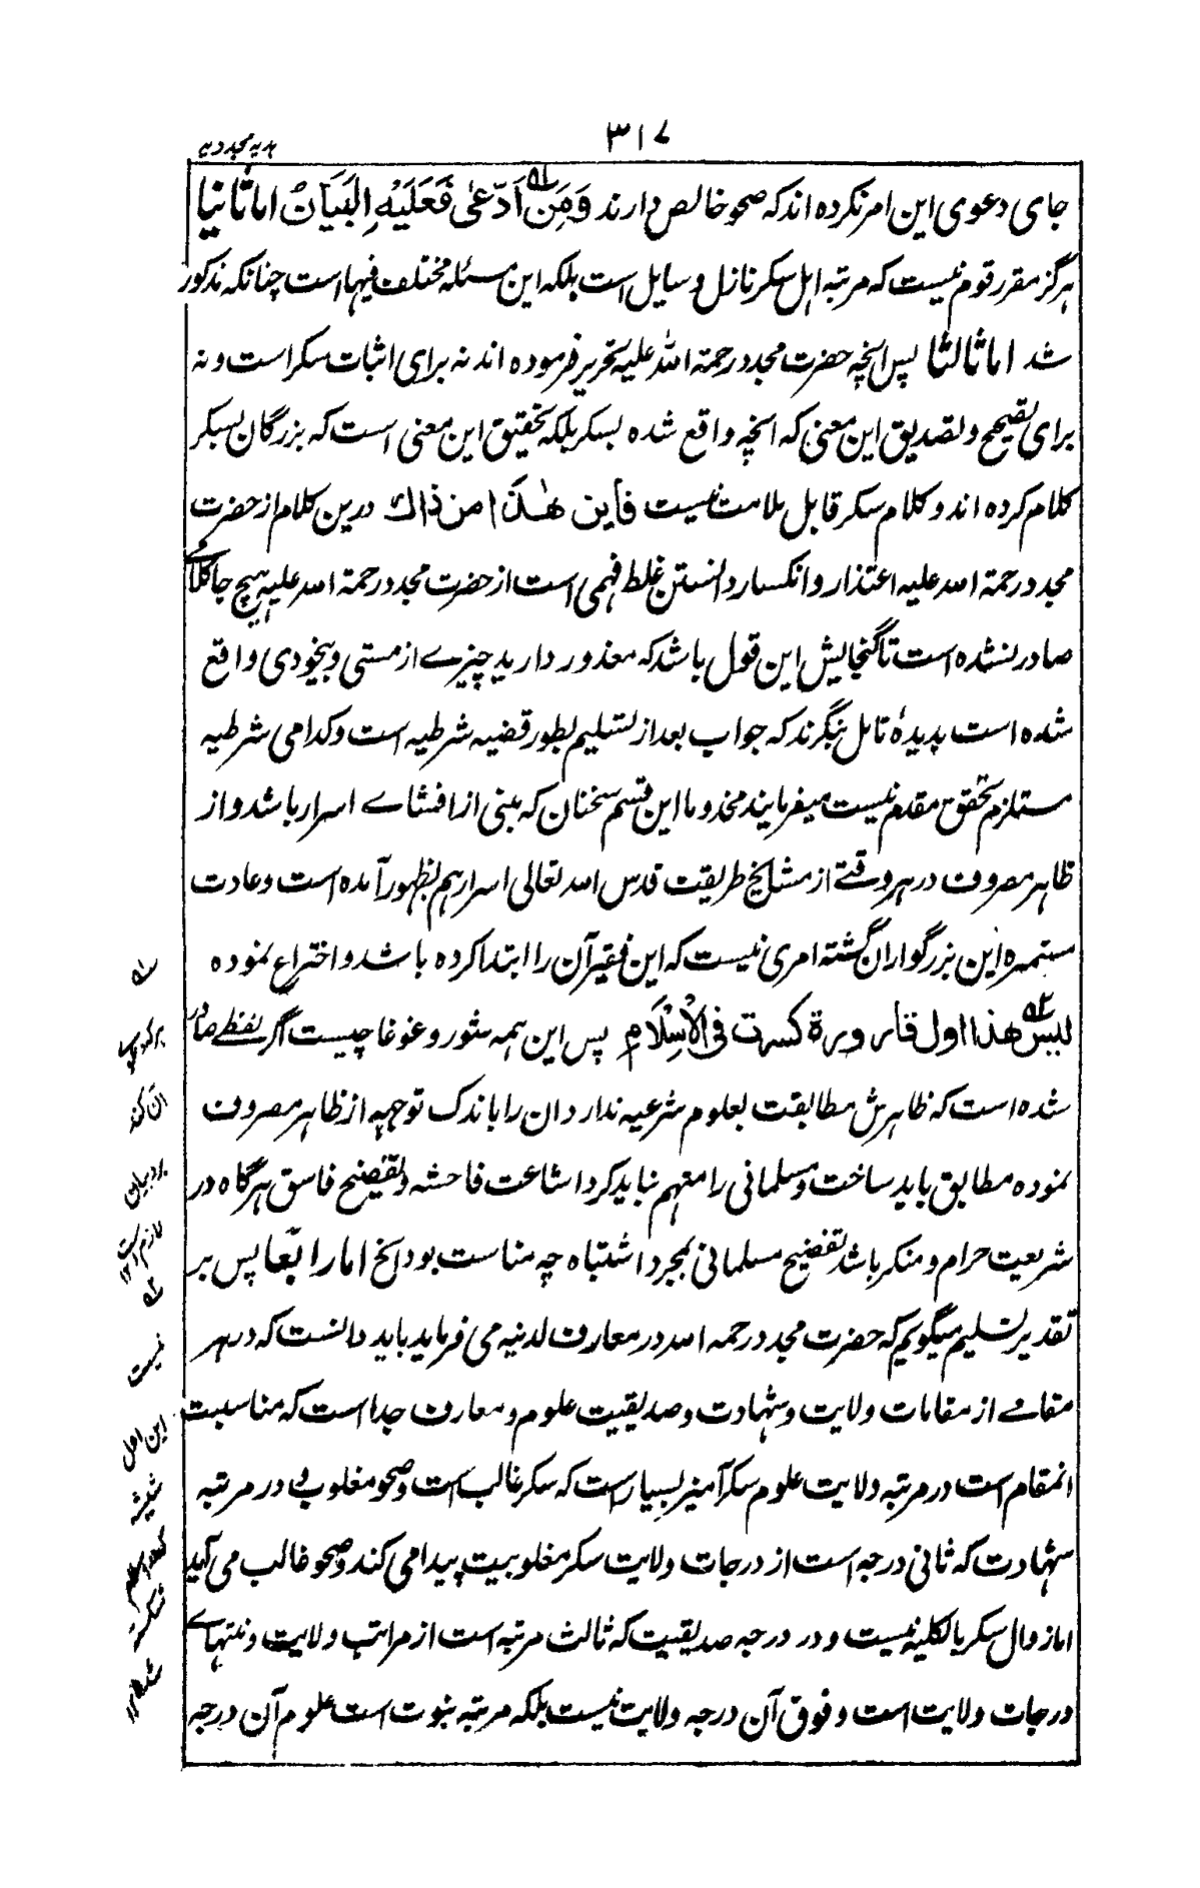 ۳۱۷
هدیه مجددیه
جای دعوی این امر نکرده اند که صحو خالص دارند وَمَن اَدّعیٰ فَعَلَیْهِ البَیَانُ اما ثانیا
هرگز مقرر قوم نیست که مرتبه اهل سکر نازل و سایل است بلکه این مسئله مختلف فیها است چنانکه مذکور
شد اما ثالثا پس انچه حضرت مجدد رحمة الله علیه تحریر فرموده اند نه برای اثبات سکر است و نه
برای تصحیح و تصدیق این معنی که انچه واقع شده بسکر بلکه تحقیق این معنی است که بزرگان بسکر
کلام کرده اند و کلام سکر قابل ملامت نیست فاین هٰذا من ذاک درین کلام از حضرت
مجدد رحمة الله علیه اعتذار و انکسار دانستن غلط فهمی است از حضرت مجدد رحمة الله علیه هیچ جا کلامے
صادر نشده است تا گنجایش این قول باشد که معذور دارید چیزے از مستی و بیخودی واقع
شده است بدیدهٔ تامل بنگرند که جواب بعد از تسلیم بطور قضیه شرطیه است و کدامی شرطیه
مستلزم تحقق مقدم نیست میفرمایند مخدوما این قسم سخنان که مبنی از افشاے اسرار باشد و از
ظاهر مصروف در هر وقتے از مشایخ طریقت قدس الله تعالی اسرارهم بظهور آمده است و عادت
مستمره این بزرگواران گشته امری نیست که این فقیر آن را ابتدا کرده باشد و اختراع نموده
لیس هذا اول قارورة کسرت فی الْاِسْلَام پس این همه شور و غوغا چیست اگر لفظے صادر
شده است که ظاهرش مطابقت بعلوم شرعیه ندارد ان را باندک توجهه از ظاهر مصروف
نموده مطابق باید ساخت و مسلمانی را متهم نباید کرد اشاعت فاحشه و تفضیح فاسق هرگاه در
شریعت حرام و منکر باشد تفضیح مسلمانی بمجرد اشتباه چه مناسبت بود الخ اما رابعًا پس بر
تقدیر تسلیم میگویم که حضرت مجدد رحمه الله در معارف لدنیه می فرماید باید دانست که در هر
مقامے از مقامات ولایت و شهادت و صدیقیت علوم و معارف جدا است که مناسبت
انمقام است در مرتبه ولایت علوم سکر آمیز بسیار است که سکر غالب است و صحو مغلوب و در مرتبه
شهادت که ثانی درجه است از درجات ولایت سکر مغلوبیت پیدا می کند و صحو غالب می آید
اما زوال سکر بالکلیه نیست و در درجه صدیقیت که ثالث مرتبه است از مراتب ولایت و نهتهاے
درجات ولایت است و فوق آن درجه ولایت نیست بلکه مرتبه نبوت است علوم آن درجه
ان کند
بر بیان
لازم است ۱۲
نیست
این اول
شیشه
که در اسلام
شکسته
شد ۱۲